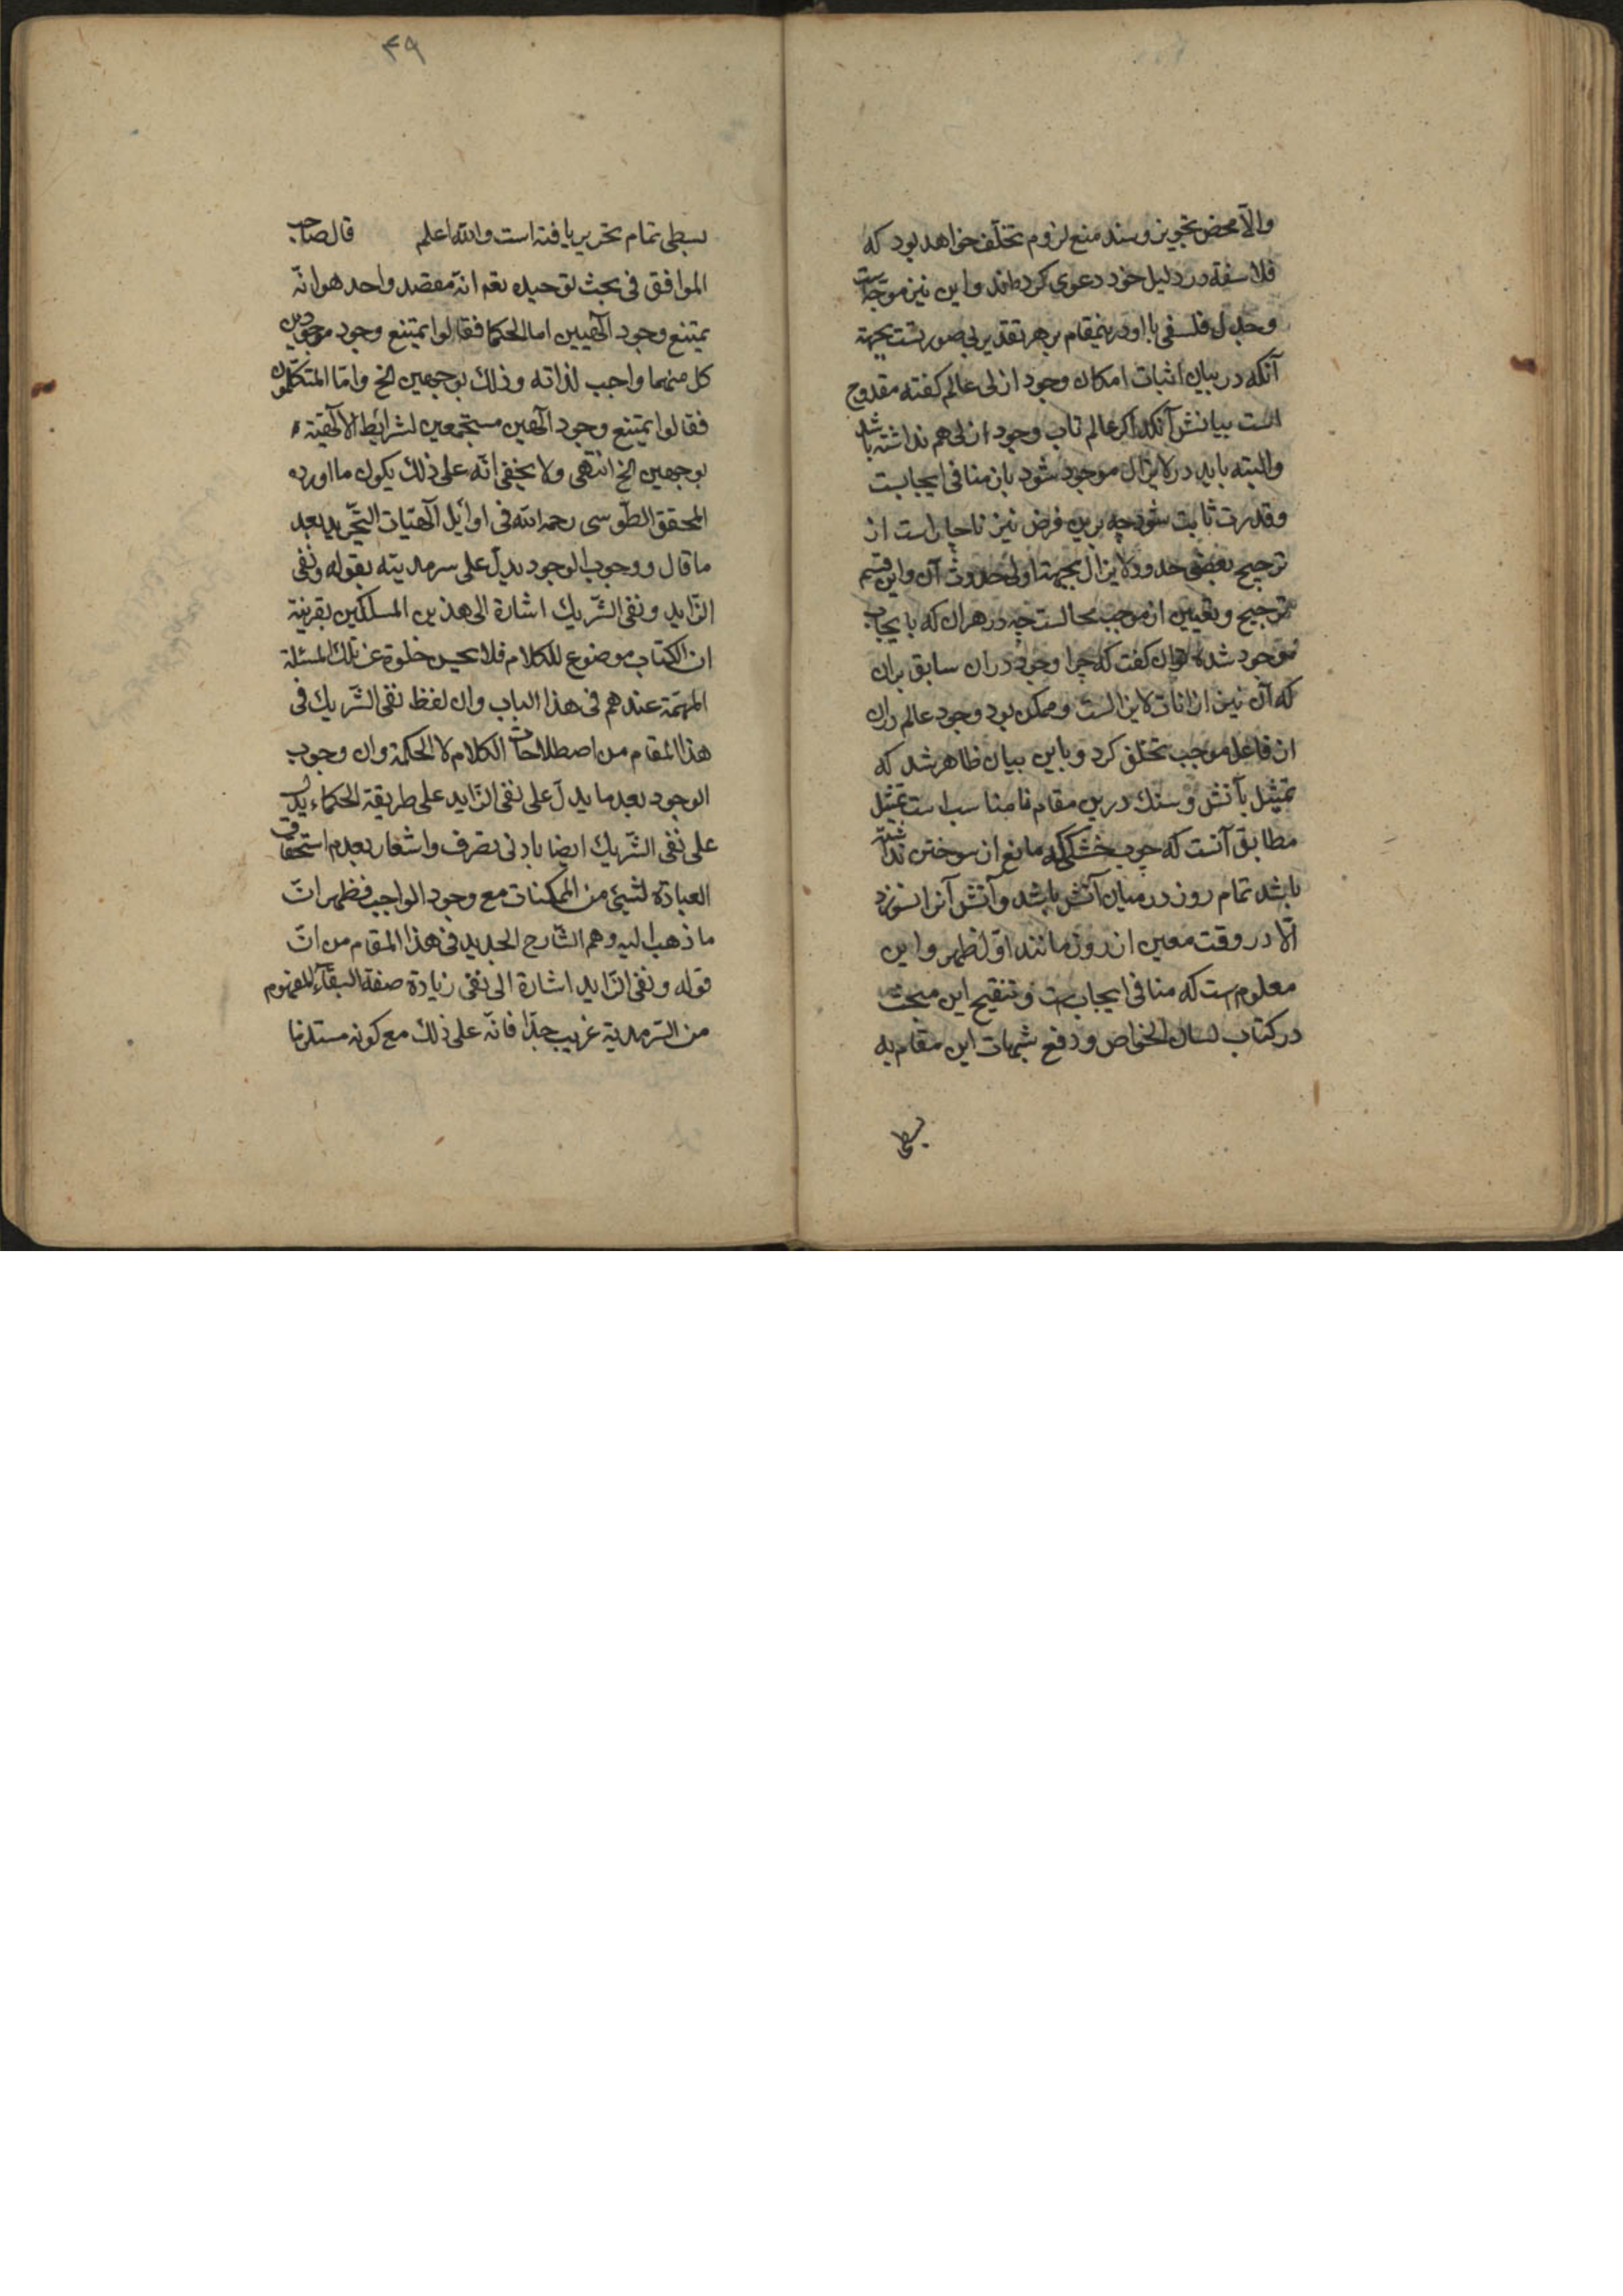 والّا محض تجویز و سند منع لزوم تخلّف خواهد بود که
فلاسفه در دلیل خود دعوی کرده‌اند و این نیز موجّه است
و جدل فلسفی با او درینمقام بر هر تقدیر بی صورتست بجهة
آنکه در بیان اثبات امکان وجود ازلی عالم کفته مقدوح
است بیانش آنکه اکر عالم تاب وجود ازلی هم نداشته باشد
و البته باید در لایزال موجود شود بازمنافی ایجابست
و قدرت ثابت شود چه برین فرض نیز ناچار است از
ترجیح بعضی حدود لایزال بجهة اولی حدوث آن و این قسم
ترجیح و تعیین از موجب محالست چه در هر ان که بایجاب
موجود شده توان کفت که چرا وجود در ان سابق بران
که آن نیز از انات لایزالست و ممکن بود وجود عالم دران
از فاعل موجب تخلف کرد و باین بیان ظاهر شد که
تمثیل بآتش و سنك درین مقام نامناسب است تمثیل
مطابق آنست که چوب خشکی که مانع از سوختن نداشته
باشد تمام روز در میان آتش باشد و آتش آنرا نسوزد
الّا در وقت معین از روز مانند اوّل ظهر و این
معلوم است که منافی ایجاب است و تنقیح این مبحث
در کتاب لسان الخواص و دفع شبهات این مقام به
بسطی
۴۹
بسطی تمام تحریر یافته است والله اعلم قال صاحب
المواقف فی بحث توحیده تعم انّه مقصد واحد هو انّه
یمتنع وجود آلهیین اما الحکما فقالوا یمتنع وجود موجودین
کل منهما واجب لذاته وذلك بوجهین الخ وامّا المتکلّمون
فقالوا یمتنع وجود آلهین مستجمعین لشرایط الالهیّة
بوجهین الخ انتهی ولا یخفی انّه علی ذلك یکون ما اورده
المحقق الطّوسی رحمه الله فی اوائل آلهیّات التّجرید بعد
ما قال ووجوب الوجود یدلّ علی سرمدیته بقوله ونفی
الزّاید ونفی الشّریك اشارة الی هذین المسلکین بقرینة
ان الکتاب موضوع للکلام فلا یحسن خلوه عن تلك المسئلة
المهمّة عندهم فی هذا الباب وان لفظ نفی الشّریك فی
هذا المقام من اصطلاحات الکلام لا الحکمة وان وجوب
الوجود بعد ما یدلّ علی نفی الزّاید علی طریقة الحکماء یدل
علی نفی الشّریك ایضا بادنی تصرف واشعار بعدم استحقاق
العبادة لشیئ من الممکنات مع وجود الواجب فظهر انّ
ما ذهب الیه وهم الشّارح الجدید فی هذا المقام من انّ
قوله ونفی الزّاید اشارة الی نفی زیادة صفة البقآء المفهوم
من السّرمدیة غریب جدّا فانّه علی ذلك مع کونه مستلزما